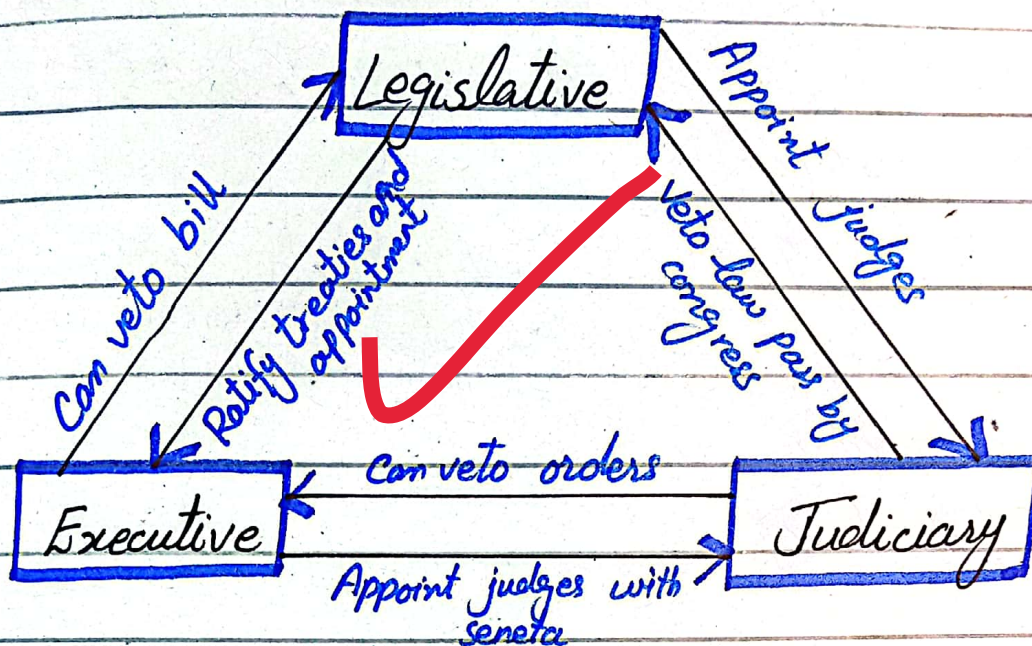 Legislative
Can veto bill
Ratify treaties and
appointment
Appoint judges
veto law pass by
congress
Can veto orders
Executive
Judiciary
Appoint judges with
seneta